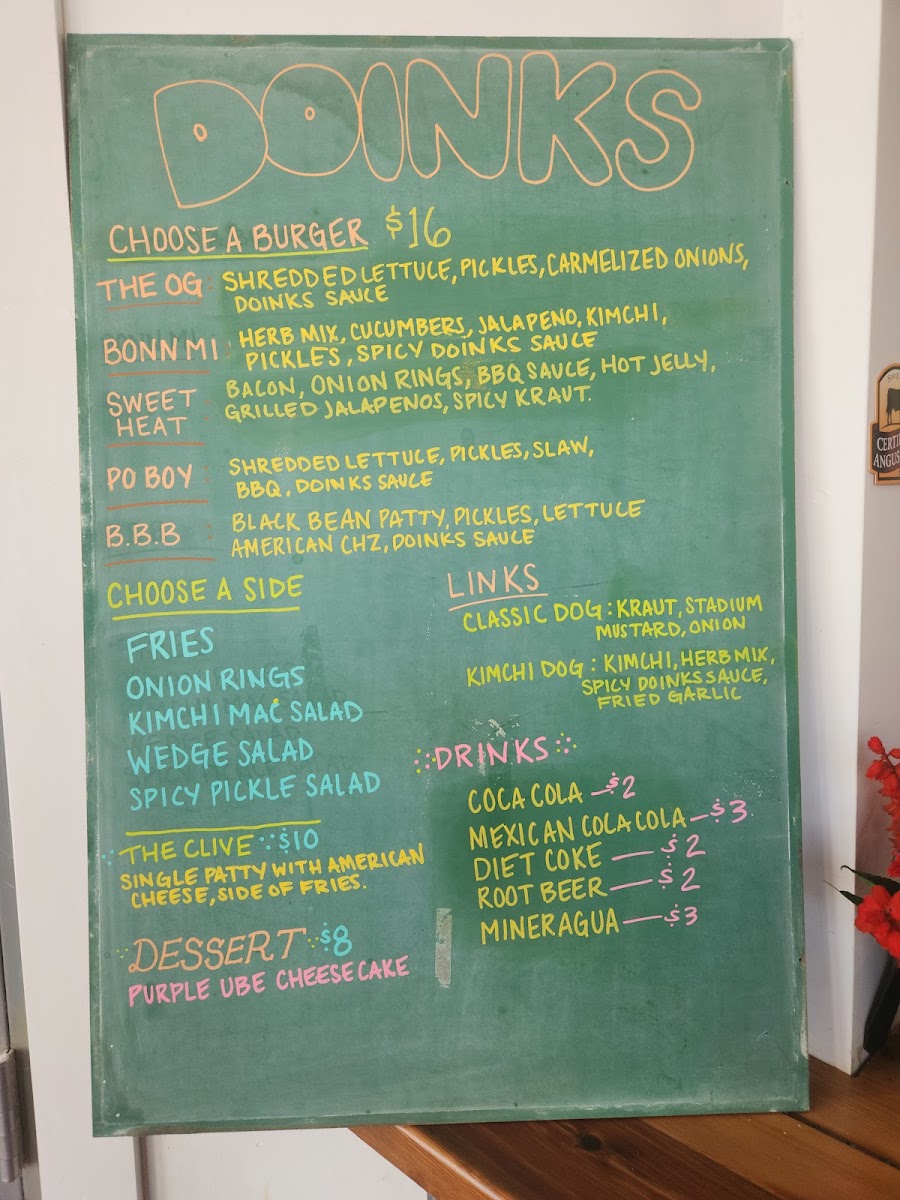 DOINKS
CHOOSE A BURGER $16
THE OG: SHREDDED LETTUCE, PICKLES, CARMELIZED ONIONS,
DOINKS SAUCE
BONN MI: HERB MIX, CUCUMBERS, JALAPENO, KIMCHI,
PICKLES, SPICY DOINKS SAUCE
SWEET
HEAT
BACON, ONION RINGS, BBQ SAUCE, HOT JELLY,
GRILLED JALAPENOS, SPICY KRAUT.
PO BOY SHREDDED LETTUCE, PICKLES, SLAW,
BBQ, DOINKS SAUCE
B.B.B BLACK BEAN PATTY, PICKLES, LETTUCE
AMERICAN CHZ, DOINKS SAUCE
CHOOSE A SIDE
FRIES
ONION RINGS
KIMCHI MAC SALAD
WEDGE SALAD
SPICY PICKLE SALAD
THE CLIVE $10
SINGLE PATTY WITH AMERICAN
CHEESE, SIDE OF FRIES.
DESSERT $8
PURPLE UBE CHEESECAKE
LINKS
CLASSIC DOG: KRAUT, STADIUM
MUSTARD, ONION
KIMCHI DOG: KIMCHI, HERB MIX,
SPICY DOINKS SAUCE,
FRIED GARLIC
DRINKS
COCA COLA - $2
MEXICAN COLA COLA - $3
DIET COKE - $2
ROOT BEER - $2
MINERAGUA - $3